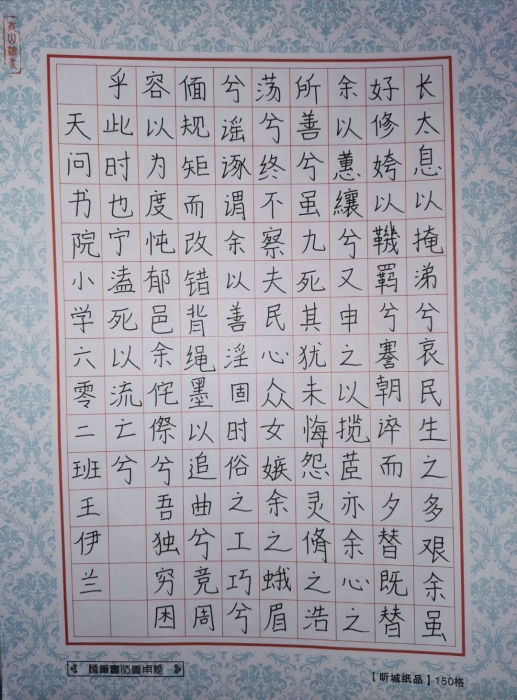 长太息以掩涕兮哀民生之多艰余虽
好修姱以鞿羁兮謇朝谇而夕替既替
余以蕙纕兮又申之以揽茝亦余心之
所善兮虽九死其犹未悔怨灵脩之浩
荡兮终不察夫民心众女嫉余之蛾眉
兮谣诼谓余以善淫固时俗之工巧兮
偭规矩而改错背绳墨以追曲兮竞周
容以为度忳郁邑余侘傺兮吾独穷困
乎此时也宁溘死以流亡兮
天问书院小学六零二班王伊兰
【昕城纸品】150格